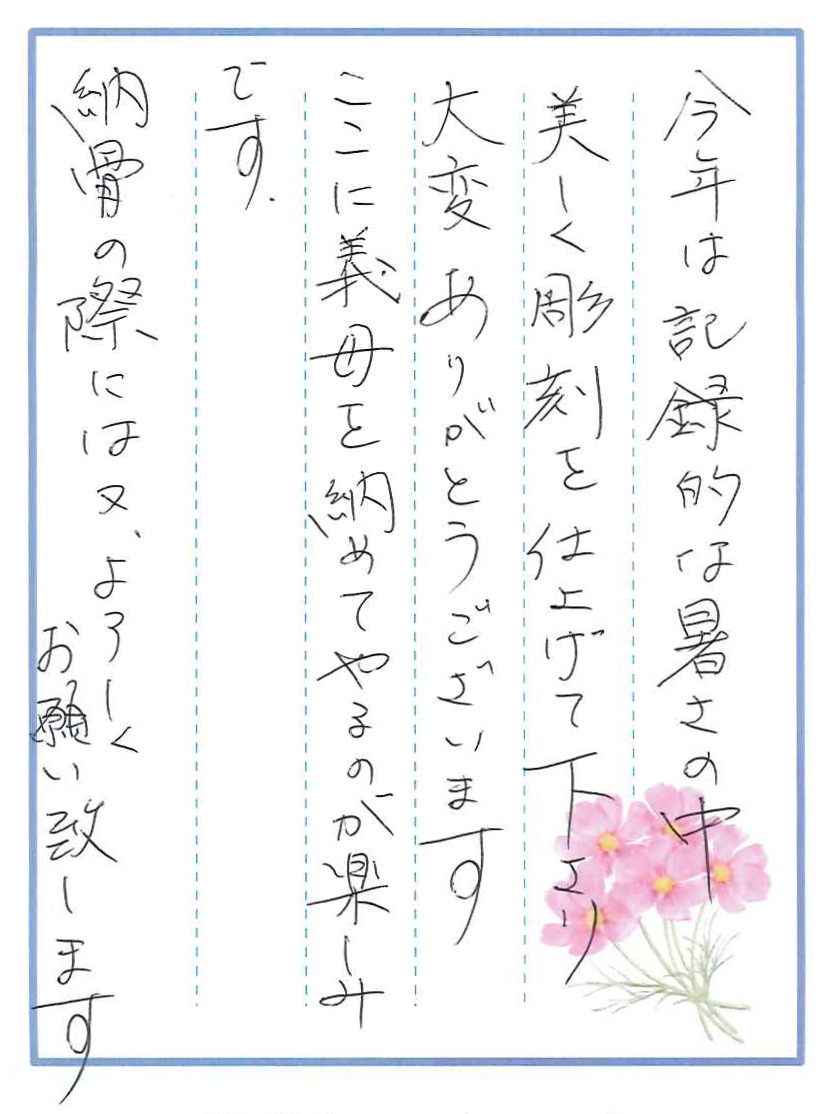 今年は記録的な暑さの中
美しく彫刻を仕上げて下より
大変ありがとうございます
ここに義母を納めてやるのが楽しみ
です.
納骨の際には又、よろしく
お願い致します